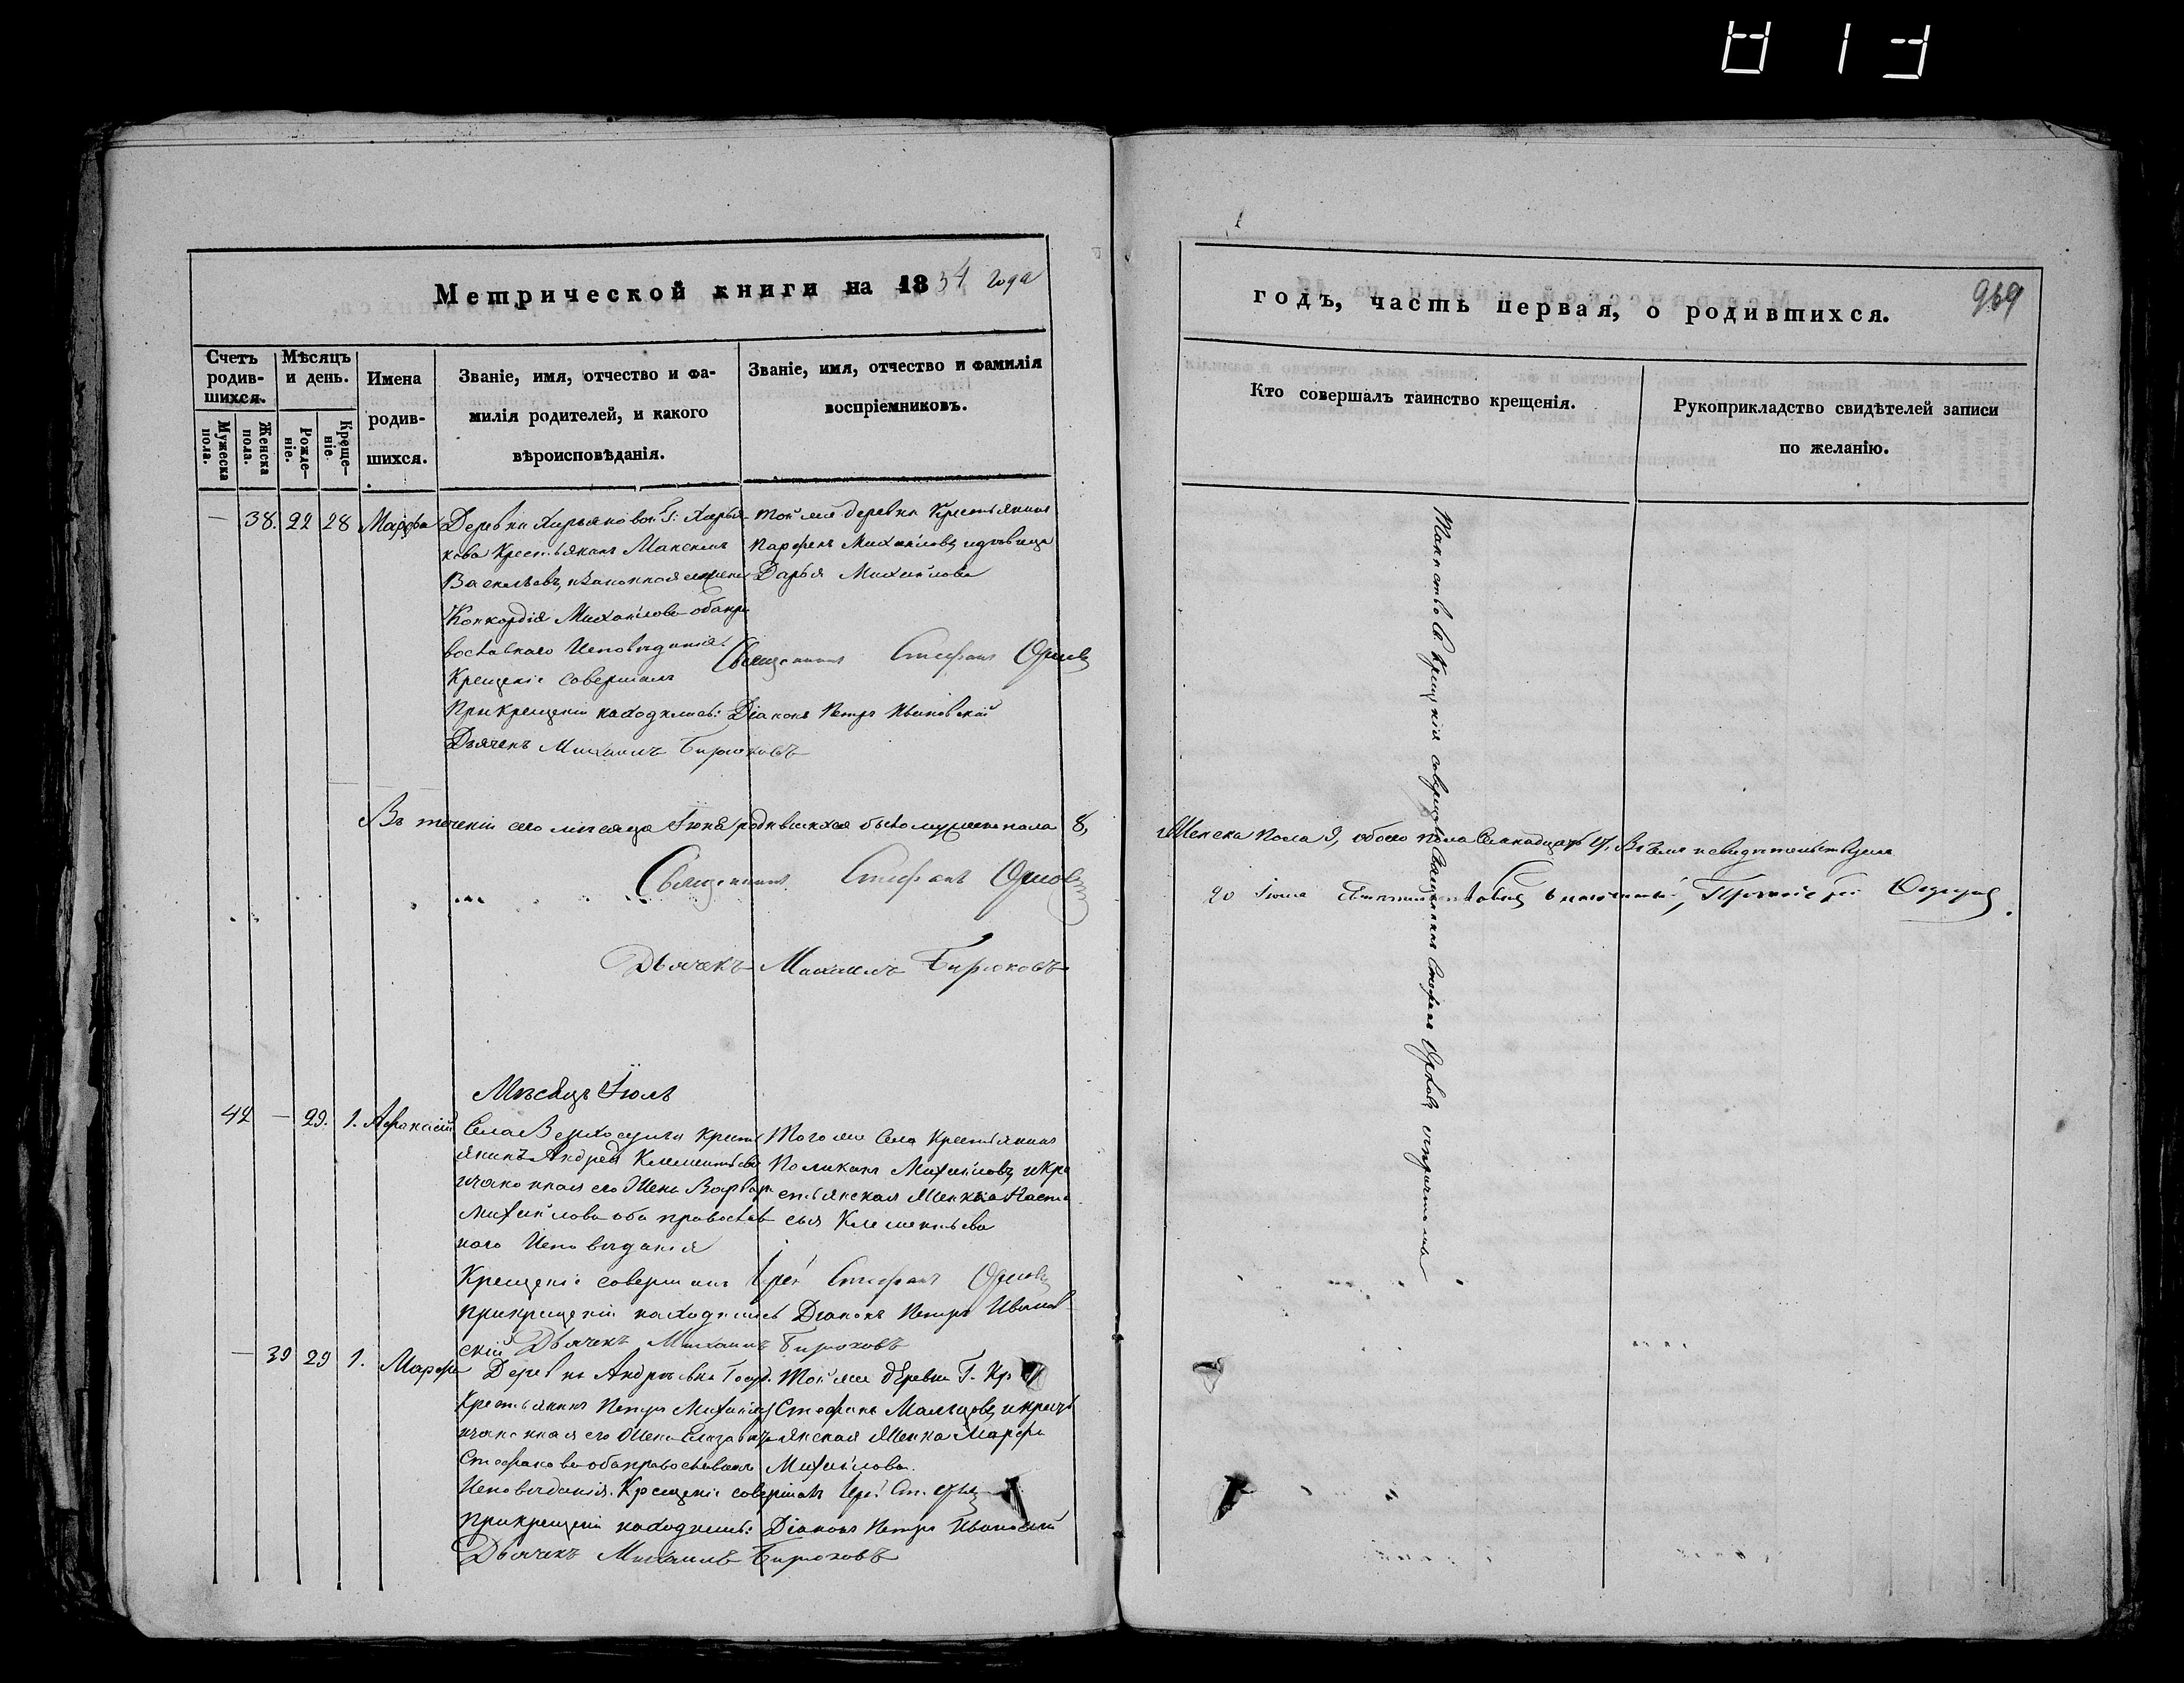 Метрической книги на 1834 года
годъ, часть первая, о родившихся.
969
Счетъ родив-шихся.
Мужеска пола.
Женска пола.
Мѣсяцъ и день.
Рожде-ніе.
Креще-ніе
Имена
родив-
шихся.
Званіе, имя, отчество и фа-
милія родителей, и какого
вѣроисповѣданія.
Званіе, имя, отчество и фамилія
воспріемниковъ.
Кто совершалъ таинство крещенія.
Рукоприкладство свидѣтелей записи
по желанію.
— 38. 22 28 Марфа
Деревни
кова Крестьянинъ Максимъ
Васильевъ, и законная его жена
Конкордія Михайлова оба пра
вославнаго Исповѣданія.
Той же деревни Крестьянинъ
Парфенъ Михайловъ и дѣвица
Дарья Михайлова
Крещеніе совершалъ Священникъ Стефанъ Орловъ
При крещеніи находились: Діаконъ Петръ Ивановскій
Дьячекъ Михаилъ Бирюковъ
Въ теченіи сего мѣсяца Іюня родившихся было мужеска пола 8,
Женска пола 9, обоего пола семнадцать 17.
Священникъ Стефанъ Орловъ
20 Іюля
Дьячекъ Михаилъ Бирюковъ
Мѣсяцъ Іюль
42 — 29. 1. Афанасій
Села Крестья
янинъ Андрей Климентьевъ
и законная его Жена Варвара
Михайлова оба православ
наго Исповѣданія
Того же Села Крестьянинъ
Михайловъ и Кре
стьянская Женка Настасья Климентьева
Крещеніе совершалъ Іерей Стефанъ Орловъ
При крещеніи находились Діаконъ Петръ Иванов
скій Дьячекъ Михаилъ Бирюковъ
— 39 29 1. Марфа
Деревни Андреевки Госуд.
Крестьянинъ Петръ Михайловъ
и законная его Жена Елизавета
Стефанова оба православнаго
Исповѣданія. Крещеніе совершалъ Іер. Ст. Орловъ
Той же деревни Г. Кр
Стефанъ Мальцовъ и кресть
янская Женка Марфа
Михайлова.
При крещеніи находились: Діаконъ Петръ Ивановскій
Дьячекъ Михаилъ Бирюковъ
Таинство Св. Крещенія совершалъ Священникъ Стефанъ Орловъ